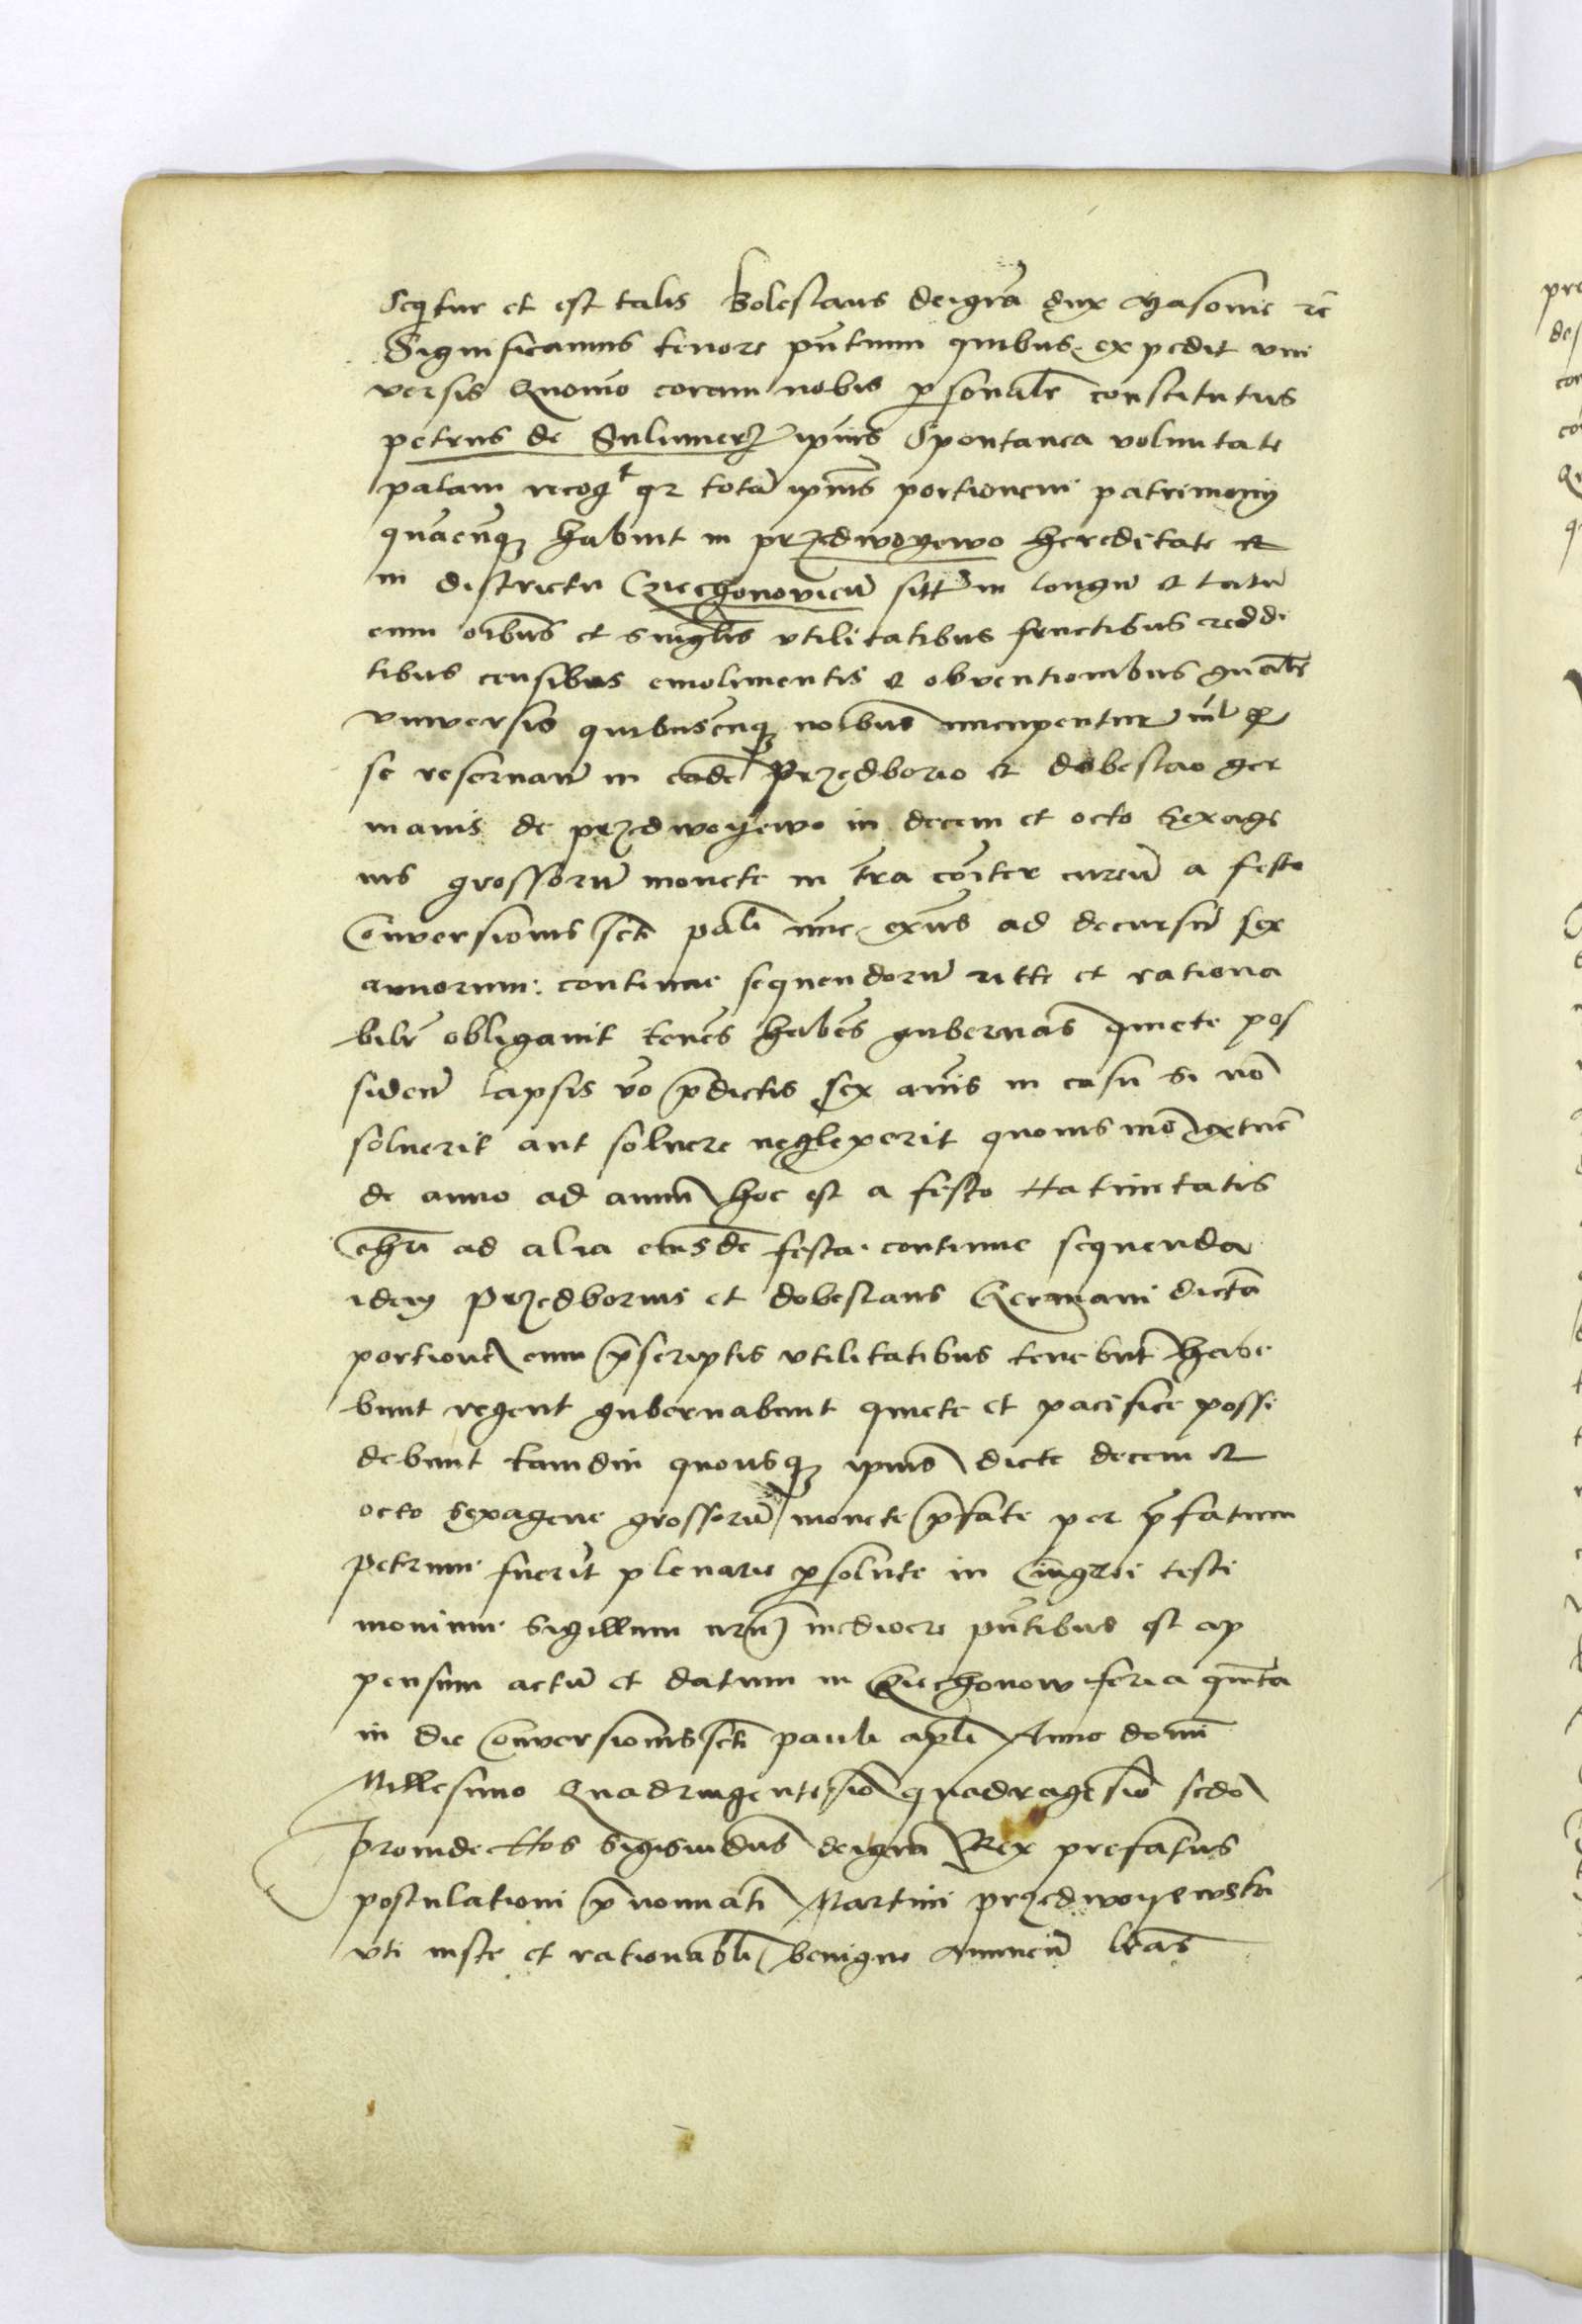 Seqitur et est talis Boleslaus deigrā dux Masouie rc̄
Significamus tenore pn̄tium quibus expedit vni
versis Quomō coram nobis personalr̄ constitutus
petrus de Sulimerz ip̄ius Spontanea voluntate
palam recogt qr totā ip̄ius portionem patrimonij
quācunq̧ habuit in przedwoyewo hereditate et
in districtu Cziechonovieñ sitt̄ in longū et latū
cum oībus et singl̄is vtilitatibus fructibus reddi
tibus censibus emolimentis et obventionibus gnāls
vniversis quibuscunq̧ noībus nuncupentur nil p
se reseruañ in eadē Przedborio et dobeslao ger
manis de przedwoyewo in decem et octo Sexage
nis grossorū monete in tr̄a cōiter curēñ a festo
Conversionis scti pali nūc exn̄s ad decursū sex
annorum continue sequendorū ritte et rationa
bilr̄ obligauit tenēs habēs gubernās quiete pos
sideñ lapsis vō p̄dictis sex annis in casu si nō
soluerit aut soluere neglexerit quouis mō extuē
de anno ad annū hoc est a festo Natiuitatis
chri ad alia eiusdē festa continue sequenda
idem Przedborius et dobeslaus Germani dictā
portionē cum p̄scriptis vtilitatibus tenebūt habe
bunt regent gubernabunt quiete et pacifice possi
debunt tamdiu quousq̧ ipius dicte decem et
octo sexagene grossorū monete p̄fate per p̄fatum
petrum fuerīt plenarie persolute in Cuīgrei testi
monium Sigillum nr̄ū mediocre pn̄tibus est ap
pensum actū et datum in Cziechonow feria quīta
in die Conversionis scti pauli apli Anno domī
Millesimo Quadringentesiō quadragesiō scdō
Proinde Nos Sigismūdus deigrā Rex prefatus
postulationi p̄nominati Martini przedwoyewski
vti iuste et rationabli benigne annueñ lr̄as